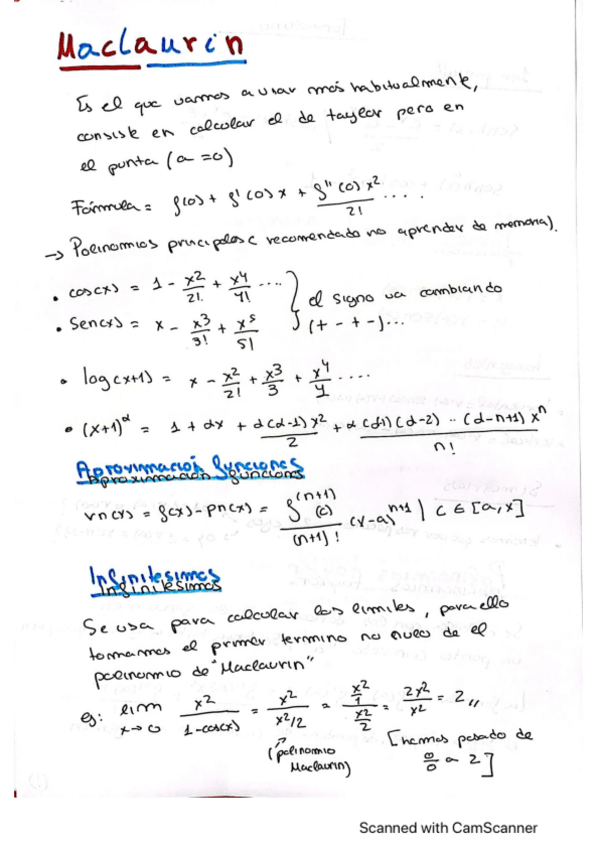 Maclaurin
Es el que vamos a usar más habitualmente,
consiste en calcular el de taylor pero en
el punto (a =0)
Fórmula = f(0) + f'(0) x + f''(0) x² / 2! ....
→ Polinomios principales ( recomendado no aprender de memoria).
• cos(x) = 1 - x²/2! + x⁴/4! ...
el signo va cambiando
• Sen(x) = x - x³/3! + x⁵/5!
(+ - + -)...
• log(x+1) = x - x²/2! + x³/3 + x⁴/4 ....
• (x+1)^α = 1 + αx + α(α-1)x²/2 + α(α-1)(α-2) ·· (α-n+1) xⁿ / n!
Aproximación funciones
Aproximación funciones
rn(x) = f(x) - pn(x) = f^(n+1)(c) / (n+1)! (x-a)^n+1 | c ∈ [a,x]
Infinitesimos
Infinitesimos
Se usa para calcular los limites, para ello
tomamos el primer termino no nulo de el
polinomio de "Maclaurin"
eg: lim x→0 x² / 1-cos(x) = x² / x²/2 = x²/1 / x²/2 = 2x²/x² = 2,,
(polinomio
Maclaurin)
[hemos pasado de
0/0 a 2]
Scanned with CamScanner